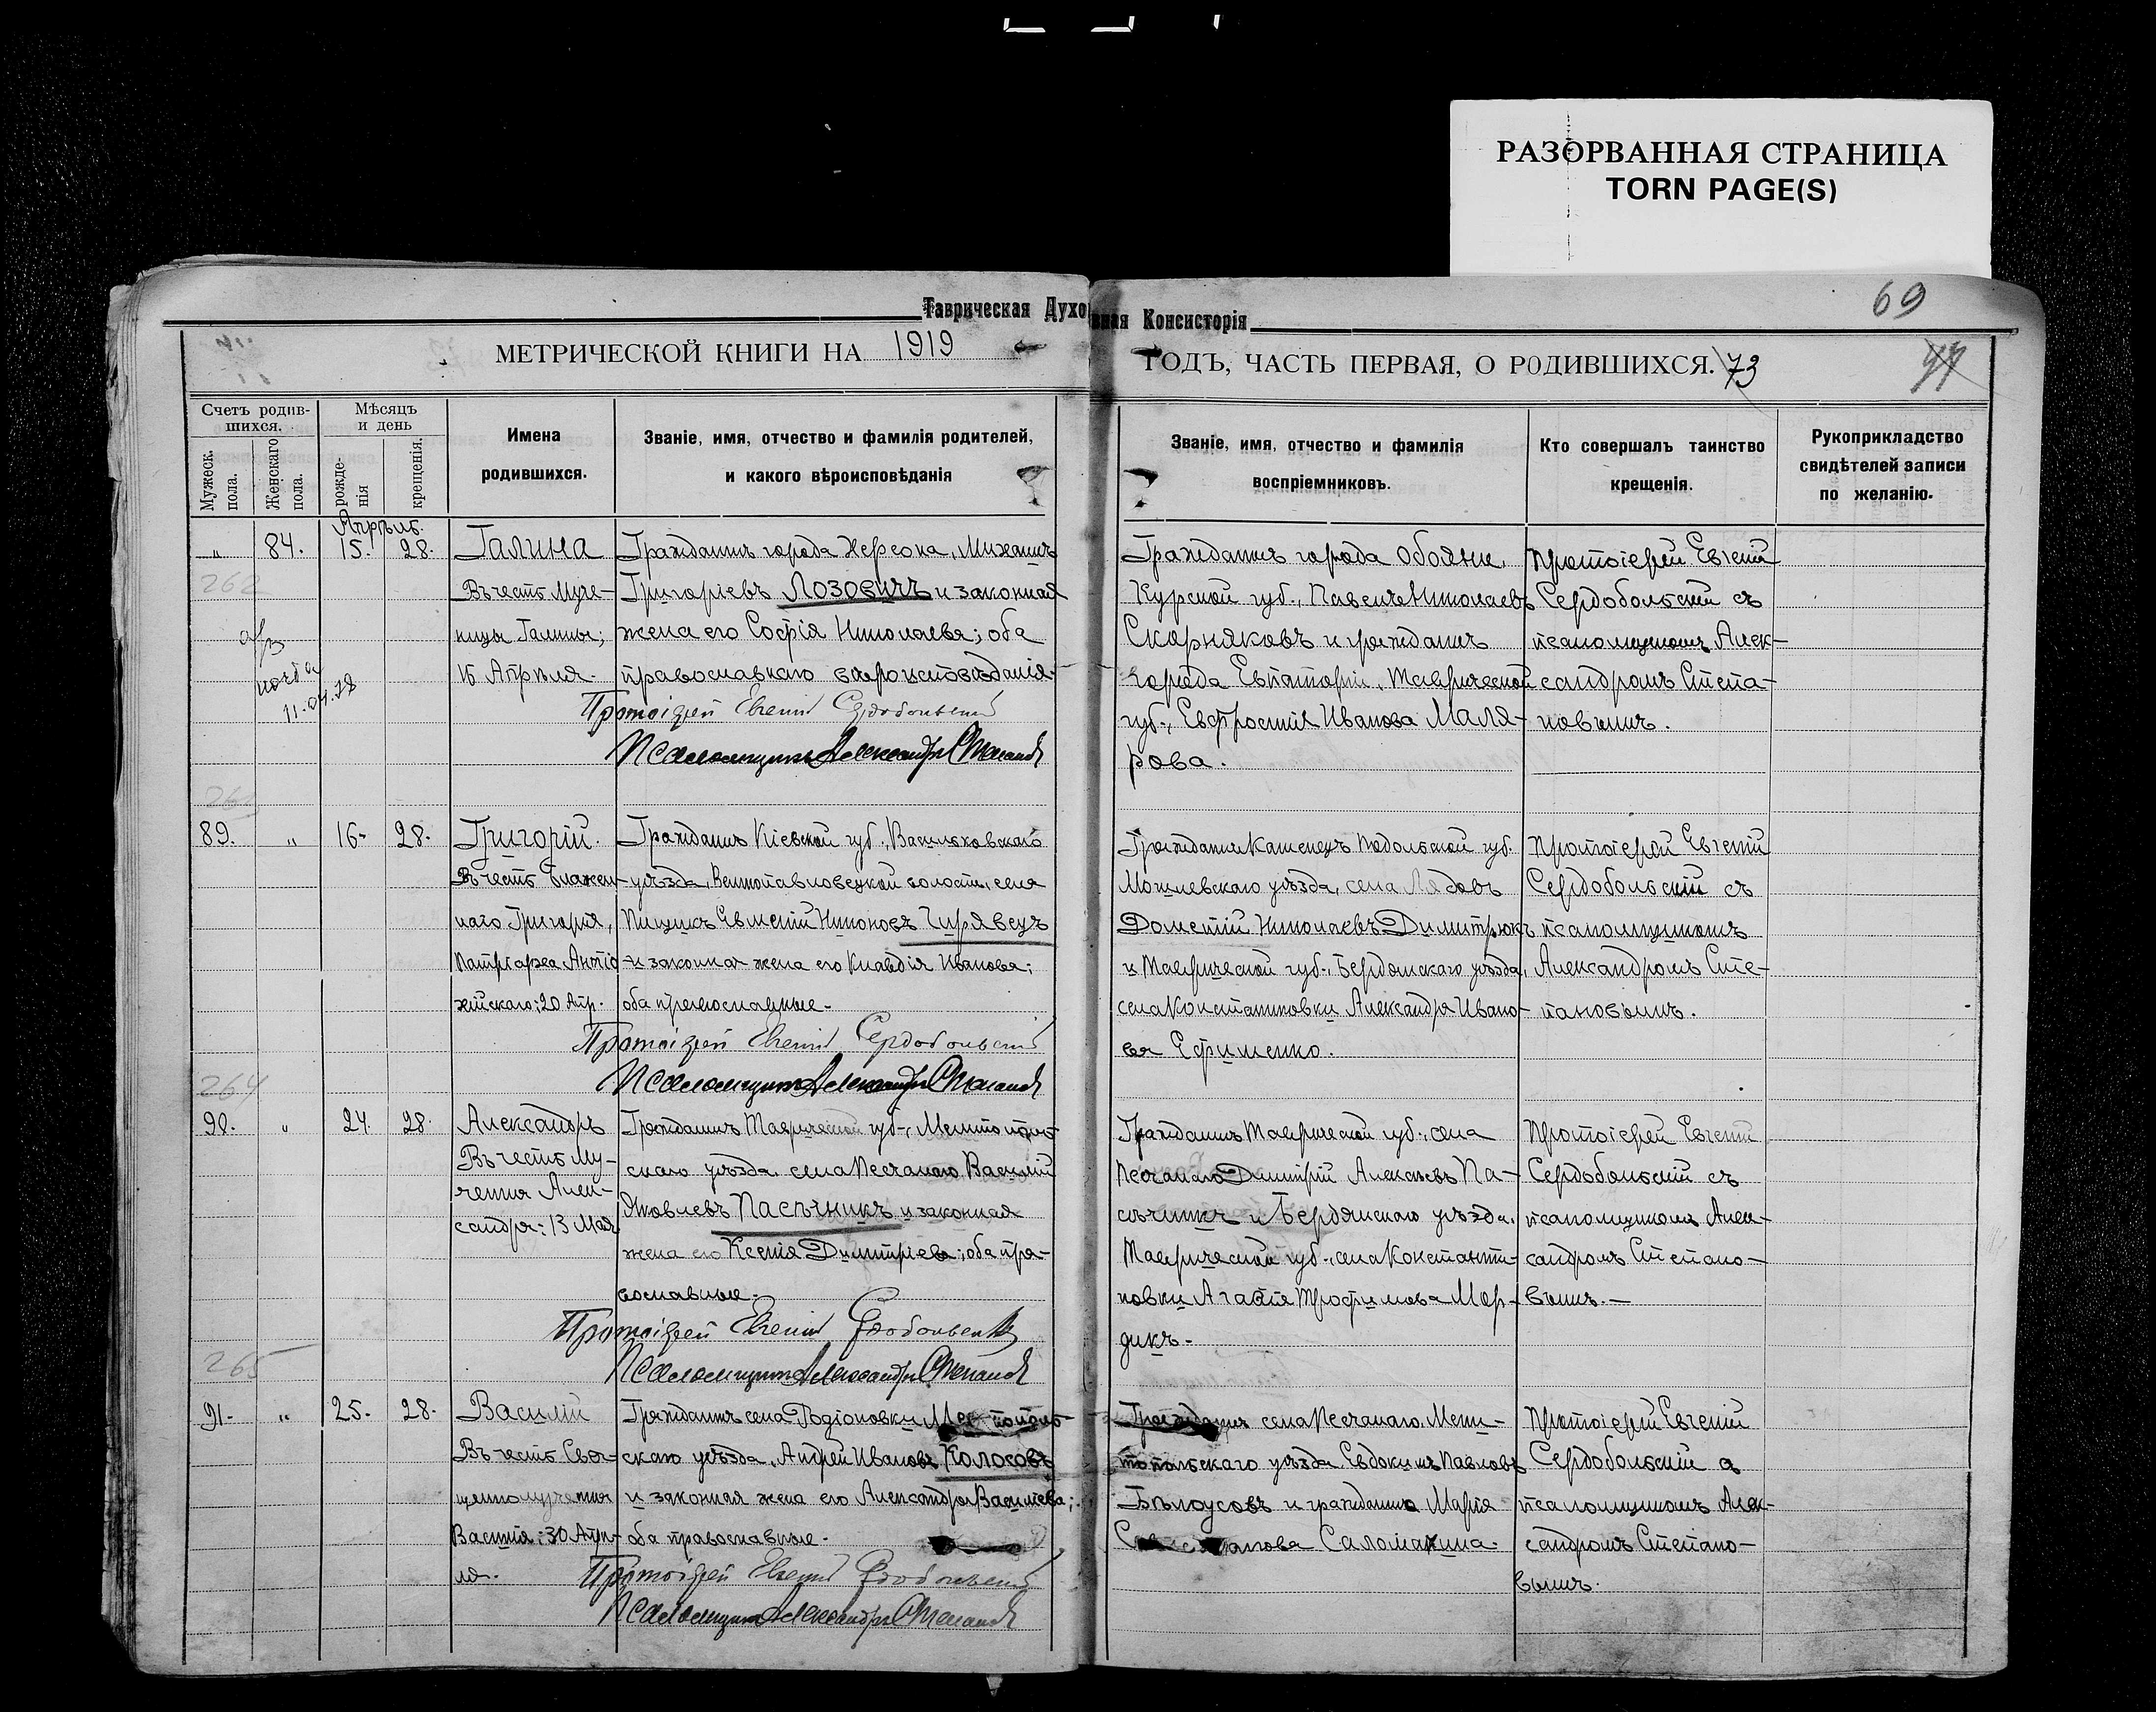 РАЗОРВАННАЯ СТРАНИЦА
TORN PAGE(S)
69
Таврическая Духовная Консисторія
МЕТРИЧЕСКОЙ КНИГИ НА 1919 ГОДЪ, ЧАСТЬ ПЕРВАЯ, О РОДИВШИХСЯ. 73
Счетъ родив-
шихся.
Мужеск. пола.
Женскаго пола.
Мѣсяцъ
и день
рожде-
нія
крещенія.
Имена
родившихся.
Званіе, имя, отчество и фамилія родителей,
и какого вѣроисповѣданія
Званіе, имя, отчество и фамилія
воспріемниковъ.
Кто совершалъ таинство
крещенія.
Рукоприкладство
свидѣтелей записи
по желанію.
Апрѣль.
„ 84. 15. 28.
262
11.04.78
Галина
Въ честь Муче-
ницы Галины;
16 Апрѣля.
Гражданинъ города Херсона, Михаилъ
Григоріевъ Лозовичъ и законная
жена его Софія Николаева; оба
православнаго вѣроисповѣданія.
Протоіерей Евгеній Сердобольскій
Псаломщикъ Александръ Степановъ
Гражданинъ города Обояни,
Курской губ., Павелъ Николаевъ
Скорняковъ и гражданка
города Евпаторіи, Таврической
губ., Евфросинія Иванова Маля-
рова.
Протоіерей Евгеній
Сердобольскій съ
псаломщикомъ Алек-
сандромъ Степа-
новымъ.
89. „ 16. 28.
Григорій.
Въ честь Блажен-
наго Григорія,
Патріарха Антіо-
хійскаго; 20 Апр.
Гражданинъ Кіевской губ., Васильковскаго
уѣзда, волости, села
Евменій Никоновъ Чирявецъ
и законная жена его Клавдія Иванова;
оба православные.
Протоіерей Евгеній Сердобольскій
Псаломщикъ Александръ Степановъ
Гражданинъ Каменецъ Подольской губ.
Могилевскаго уѣзда, села Лядовъ
Дометій Николаевъ Димитрюкъ
и Таврической губ., Бердянскаго уѣзда,
села Константиновки Александра Ивано-
ва Ефименко.
Протоіерей Евгеній
Сердобольскій съ
псаломщикомъ
Александромъ Сте-
пановымъ.
264
90. „ 24. 28.
Александръ
Въ честь Му-
ченика Алек-
сандра: 13 Мая
Гражданинъ Таврической губ., Мелитополь-
скаго уѣзда села Песчанаго, Василій
Яковлевъ Пасѣчникъ и законная
жена его Ксенія Димитріева; оба пра-
вославные.
Протоіерей Евгеній Сердобольскій
Псаломщикъ Александръ Степановъ
Гражданинъ Таврической губ., села
Песчанаго Димитрій Алексѣевъ Па-
сѣчникъ и Бердянскаго уѣзда,
Таврической губ., села Константи-
новки Агафія Трофимова Мор-
дикъ.
Протоіерей Евгеній
Сердобольскій съ
псаломщикомъ Алек-
сандромъ Степано-
вымъ.—
265
91. „ 25. 28.
Василій
Въ честь Свя-
щенномученика
Василія: 30 Апрѣ-
ля.
Гражданинъ села Родіоновки Мелитополь-
скаго уѣзда, Андрей Ивановъ Колосовъ
и законная жена его Александра Васильева;
оба православные.
Протоіерей Евгеній Сердобольскій
Псаломщикъ Александръ Степановъ
Гражданинъ села Песчанаго, Мели-
топольскаго уѣзда Евдокимъ Павловъ
Бѣлоусовъ и гражданка Марія
Саломакина.
Протоіерей Евгеній
Сердобольскій съ
псаломщикомъ Алек-
сандромъ Степано-
вымъ.